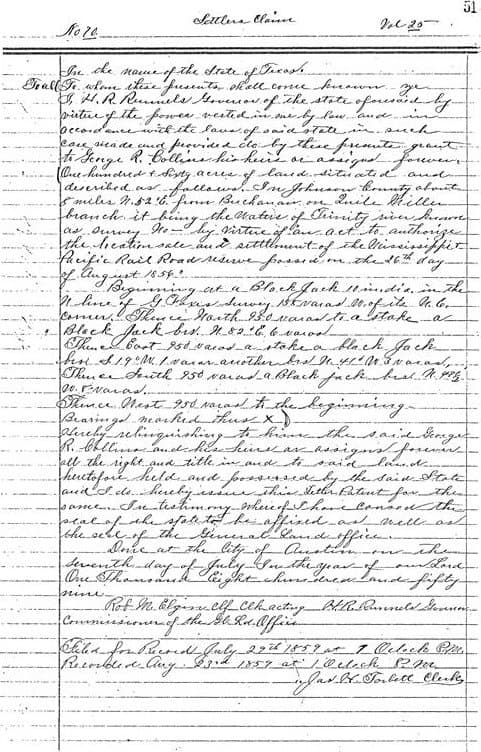 51
Settlers Claim
No 70.
Vol 25
In the name of the State of Texas.
To all To whom these presents shall come known ye
I, H. R. Runnels Governor of the state aforesaid by
virtue of the power vested in me by law and in
accordance with the laws of said state in such
case made and provided do by these presents grant
to George R. Collins his heirs or assigns forever,
One hundred & Sixty acres of land situated and
described as follows. In Johnson County about
5 miles N. 52° E. from Buchanan on Quile Miller
branch it being the Waters of Trinity river known
as survey No — by virtue of an act to authorize
the location sale and settlement of the Mississippi &
Pacific Rail Road reserve passed on the 26th day
of August 1856.
Beginning at a Black Jack 11 in dia. in the
N. line of G. survey 158 varas W. of its N. E.
corner, Thence North 950 varas to a stake a
Black Jack brs. N. 82° E. 6 varas
Thence East 950 varas a stake a black Jack
brs. S. 19° W. 1 varas another brs N. 41° W. 3 varas,
Thence South 950 varas a Black jack brs. N. 
W. 5 varas.
Thence West 950 varas to the beginning.
Bearings marked thus X
Hereby relinquishing to him the said George
R. Collins and his heirs or assigns forever
all the right and title in and to said land
heretofore held and possessed by the said State
and I do hereby issue this Letter Patent for the
same. In testimony whereof I have caused the
seal of the state to be affixed as well as
the seal of the General Land office.
Done at the City of Austin on the
seventh day of July In the year of our Lord
One Thousand Eight hundred and fifty
nine
Rob M. Elgin Clf Clk acting H. R. Runnels Governor
Commissioner of the Gl. Ld. Office
Filed for Record July 29th 1859 at 7 Oclock P.M.
Recorded Aug. 23rd 1859 at 1 Oclock P.M.
Jas. H. Torbett Clerk